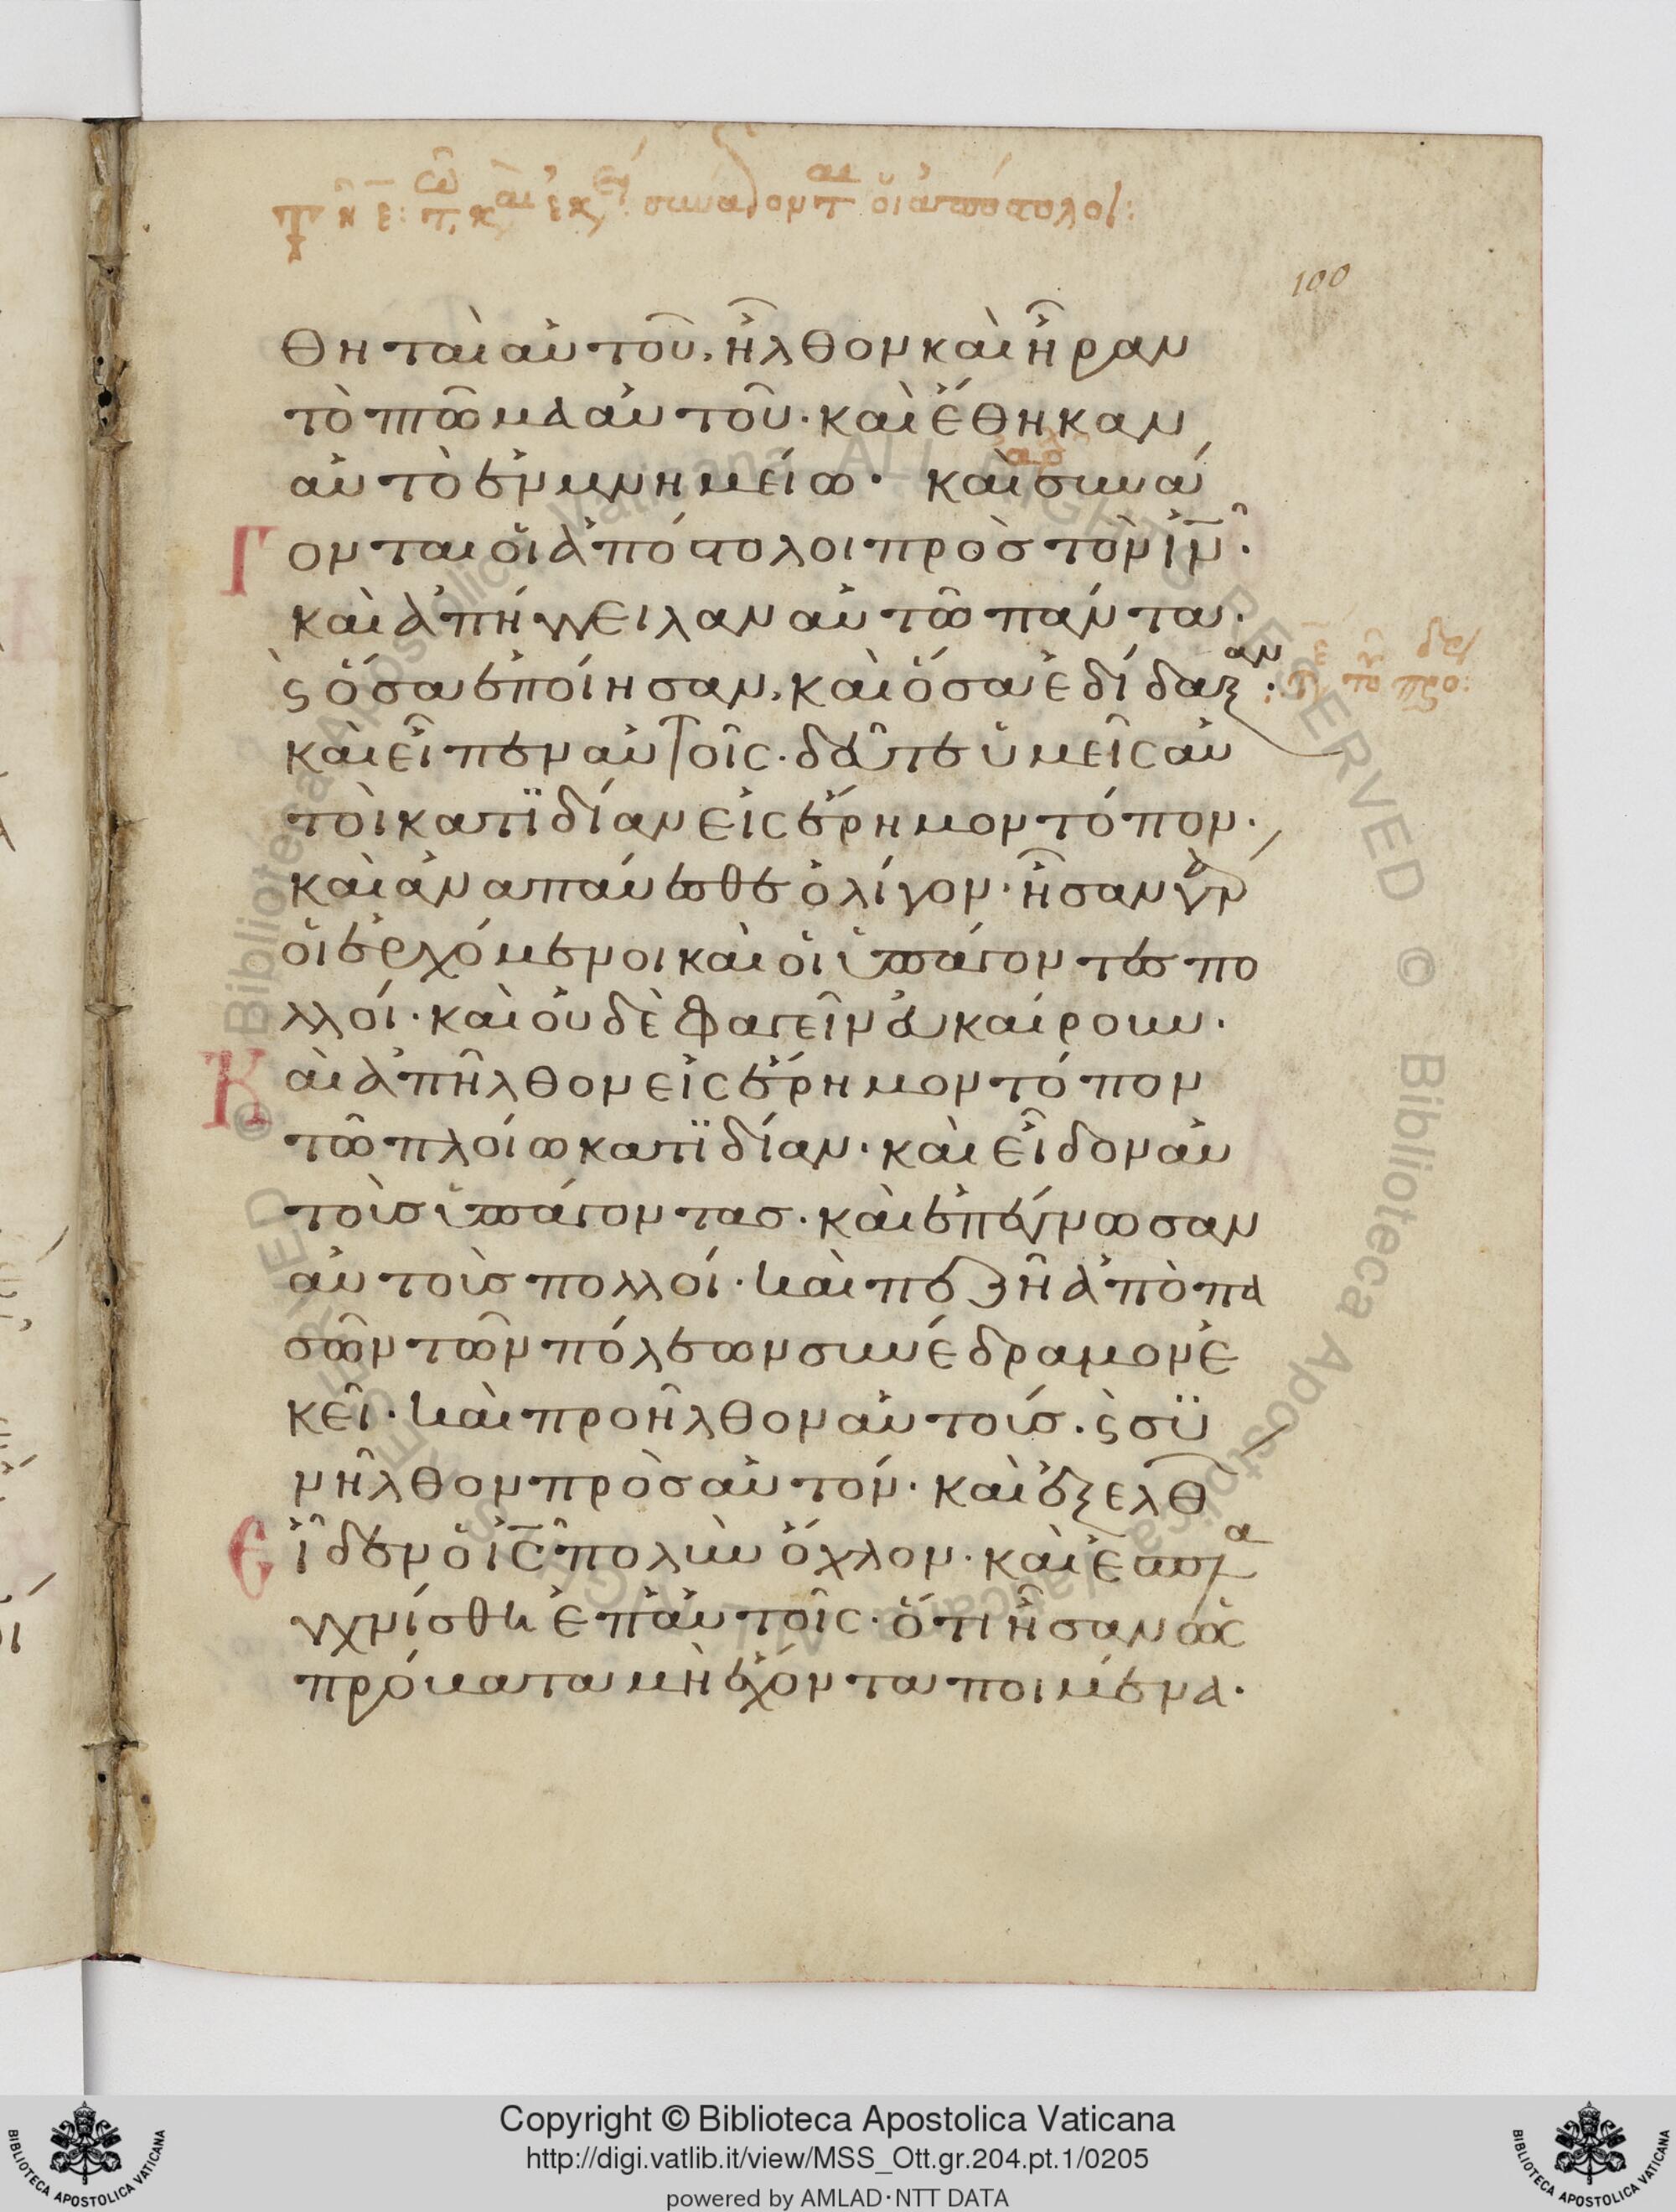 100
θηταὶ αὐτοῦ, ἦλθον καὶ ἦραν
τὸ πτῶμα αὐτοῦ· καὶ ἔθηκαν
αὐτὸ ἐν μνημείω· καὶ συνά
Γ ονται οἱ ἀπόστολοι πρὸς τὸν ῑν̄·
καὶ ἀπήγγειλαν αὐτῶ πάντα·
ϛ ὅσα ἐποίησαν, καὶ ὅσα ἐδίδαξαν·
καὶ εἶπεν αὐτοῖς· δεῦτε ὑμεῖς αὐ
τοὶ κατϊδίαν εἰς ἔρημον τόπον·
καὶ ἀναπαύεσθε ὀλίγον· ἦσαν γὰρ
οἱ ἐρχόμενοι καὶ οἱ ὑπάγοντες πο
λλοί· καὶ οὐδὲ φαγεῖν εὐκαίρουν·
Καὶ ἀπῆλθον εἰς ἔρημον τόπον
τῶ πλοίω κατϊδίαν· καὶ εἶδον αὐ
τοὺς ὑπάγοντας· καὶ ἐπέγνωσαν
αὐτοὺς πολλοί· καὶ πεζῆ ἀπὸ πα
σῶν τῶν πόλεων συνέδραμον ἐ
κεῖ· καὶ προῆλθον αὐτούς· ϛ συ
νῆλθον πρὸς αὐτόν· καὶ ἐξελθ
Εἶδεν ὁ ῑς̄ πολὺν ὄχλον· καὶ ἐσπλα
γχνίσθη ἐπ' αὐτοῖς· ὅτι ἦσαν ὡς
πρόβατα μὴ ἔχοντα ποιμένα·
© Biblioteca Apostolica Vaticana ALL RIGHTS RESERVED
Copyright © Biblioteca Apostolica Vaticana
http://digi.vatlib.it/view/MSS_Ott.gr.204.pt.1/0205
powered by AMLAD·NTT DATA
BIBLIOTECA APOSTOLICA VATICANA
BIBLIOTECA APOSTOLICA VATICANA